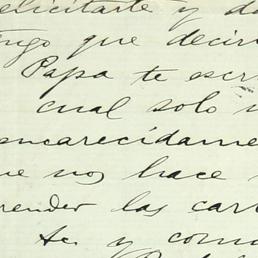 elicitarte y da
engo que decir
Papa te escr
cual solo
encarecidame
ue nos hace
render las car
te. y como